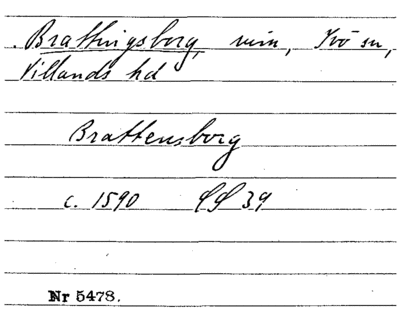 Brattingsborg, ruin, Ivö sn,
Villands hd
Brattensborg
c. 1590 SS 39
Nr 5478.